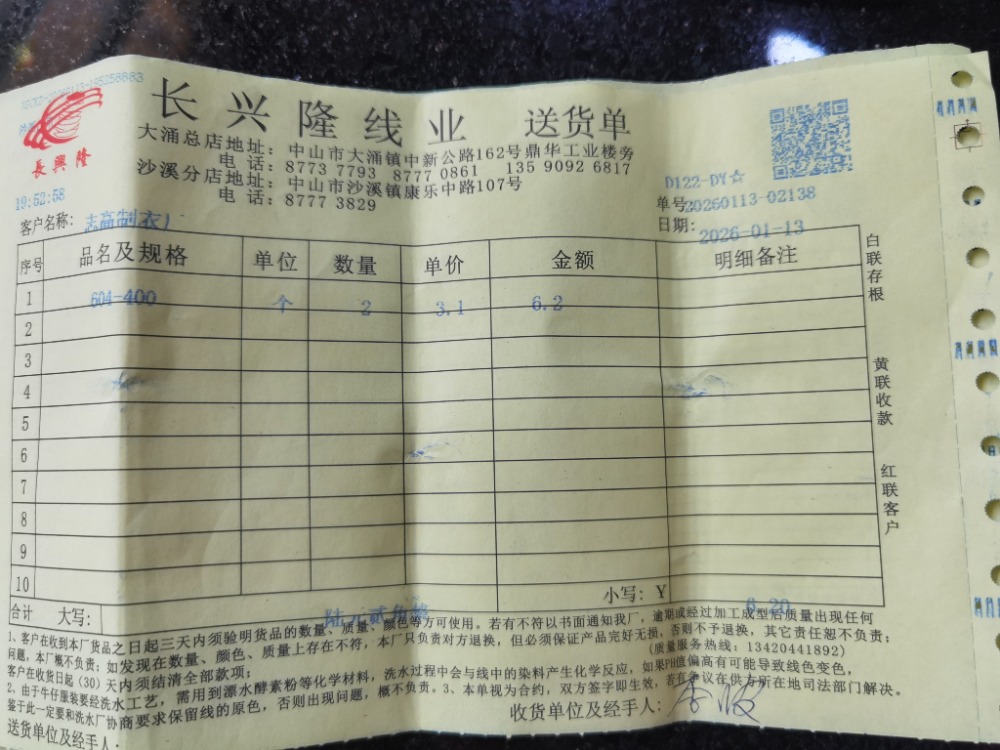 長興隆
长兴隆线业 送货单
大涌总店地址：中山市大涌镇中新公路162号鼎华工业楼旁
电话：8773 7793 8777 0861 135 9092 6817
沙溪分店地址：中山市沙溪镇康乐中路107号
电话：8777 3829
D122-DY☆
19:52:58
单号 20260113-02138
客户名称：志高制衣
日期：2026-01-13
序号 品名及规格 单位 数量 单价 金额 明细备注
1 604-400 个 2 3.1 6.2
2
3
4
5
6
7
8
9
10
白联存根
黄联收款
红联客户
合计 大写：陆元贰角 小写：Y 6.20
1、客户在收到本厂货品之日起三天内须验明货品的数量、质量、颜色等方可使用。若有不符以书面通知我厂，逾期或经过加工成型后质量出现任何
问题，本厂概不负责；如发现在数量、颜色、质量上存在不符，本厂只负责对方退换，但必须保证产品完好无损，否则不予退换，其它责任恕不负责；
客户在收货日起（30）天内须结清全部款项； （质量服务热线：13420441892）
2、由于牛仔服装要经洗水工艺，需用到漂水酵素粉等化学材料，洗水过程中会与线中的染料产生化学反应，如果PH值偏高有可能导致线色变色，
鉴于此一定要和洗水厂协商要求保留线的原色，否则出现问题，概不负责。3、本单视为合约，双方签字即生效，若有争议在供方所在地司法部门解决。
送货单位及经手人： 收货单位及经手人：